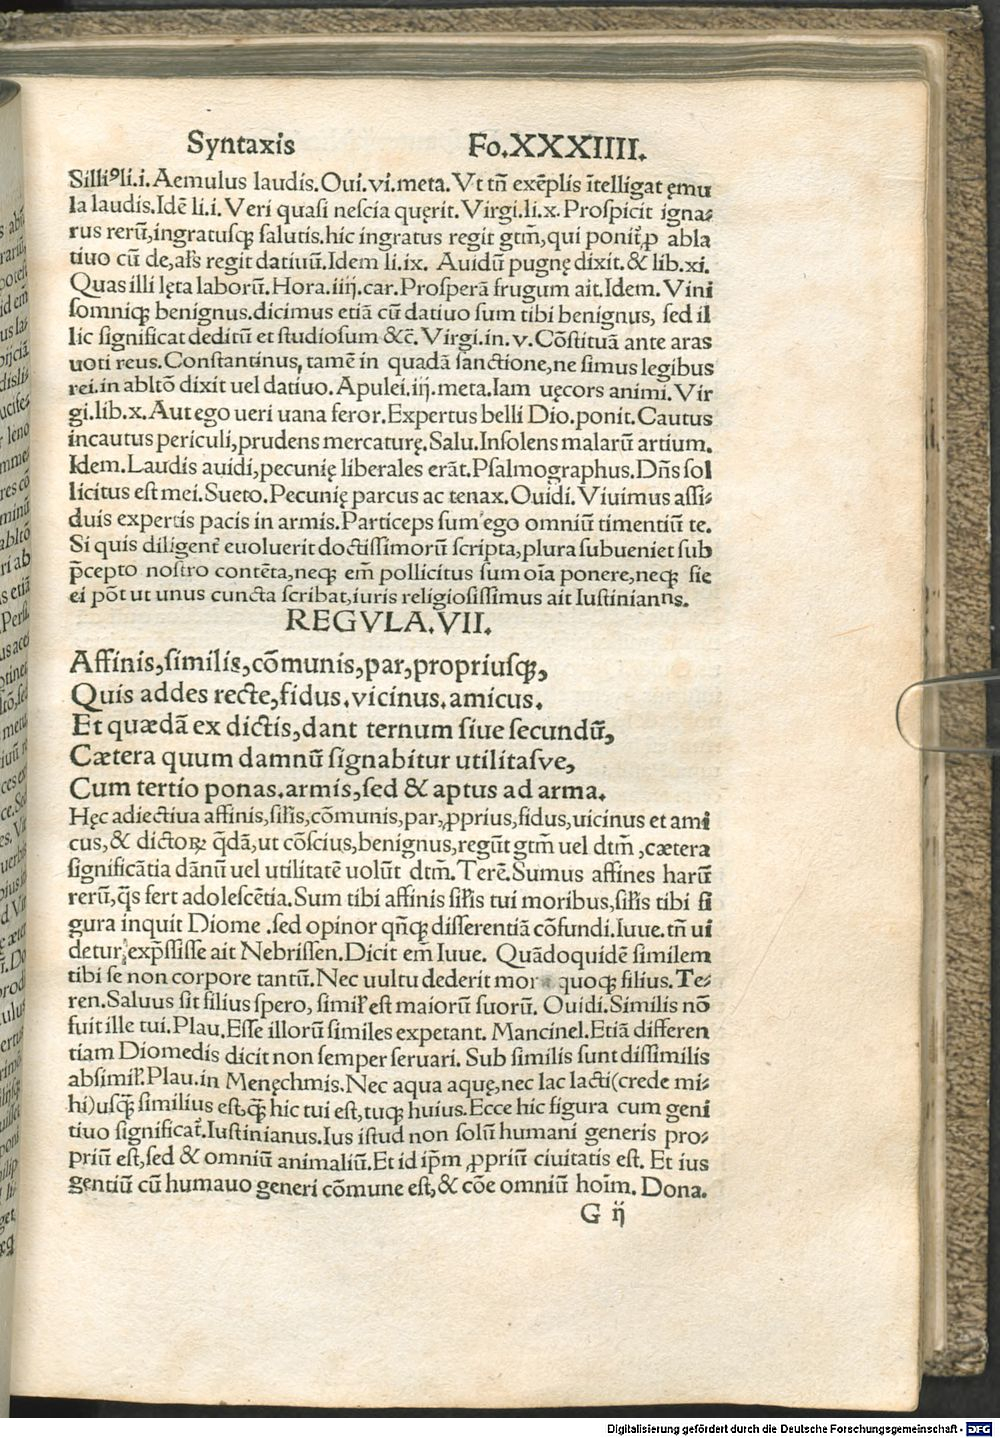 Syntaxis Fo.XXXIIII.
Silliꝰ li.i. Aemulus laudis. Oui. vi. meta. Vt tñ exẽplis ĩtelligat ęmu
la laudis. Idẽ li.i. Veri quasi nescia quęrit. Virgi. li.x. Prospicit igna⸗
rus rerũ, ingratusq̃ salutis. hic ingratus regit gtm̃, qui ponit̃ ꝓ abla
tiuo cũ de, al's regit datiuũ. Idem li.ix. Auidũ pugnę dixit. & lib.xi.
Quas illi lęta laborũ. Hora. iiij. car. Prosperã frugum ait. Idem. Vini
somniq̃ benignus. dicimus etiã cũ datiuo sum tibi benignus, sed il
lic significat deditũ et studiosum &c̃. Virgi. in. v. Cõstituã ante aras
uoti reus. Constantinus, tamẽ in quadã sanctione, ne simus legibus
rei. in abltõ dixit uel datiuo. Apulei. iij. meta. Iam uęcors animi. Vir
gi. lib.x. Aut ego ueri uana feror. Expertus belli Dio. ponit. Cautus
incautus periculi, prudens mercaturę. Salu. Insolens malarũ artium.
Idem. Laudis auidi, pecunię liberales erãt. Psalmographus. Dñs sol
licitus est mei. Sueto. Pecunię parcus ac tenax. Ouidi. Viuimus assi⸗
duis expertis pacis in armis. Particeps sum ego omniũ timentiũ te.
Si quis diligent̃ euoluerit doctissimorũ scripta, plura subueniet sub
p̃cepto nostro contẽta, neq̃ em̃ pollicitus sum oĩa ponere, neq̃ sic
ei põt ut unus cuncta scribat, iuris religiosissimus ait Iustinianns.
REGVLA.VII.
Affinis, similis, cõmunis, par, propriusq̃,
Quis addes recte, fidus. vicinus. amicus.
Et quædã ex dictis, dant ternum siue secundũ,
Cætera quum damnũ signabitur utilitasve,
Cum tertio ponas. armis, sed & aptus ad arma.
Hęc adiectiua affinis, sil'is, cõmunis, par, ꝓprius, fidus, uicinus et ami
cus, & dictoꝝ q̃dã, ut cõscius, benignus, regũt gtm̃ uel dtm̃, cætera
significãtia dãnũ uel utilitatẽ uolũt dtm̃. Terẽ. Sumus affines harũ
rerũ, q̃s fert adolescẽtia. Sum tibi affinis sil'is tui moribus, sil'is tibi fi
gura inquit Diome. sed opinor qñq̃ differentiã cõfundi. Iuue. tñ ui
detur exp̃ssisse ait Nebrissen. Dicit em̃ Iuue. Quãdoquidẽ similem
tibi se non corpore tantũ. Nec uultu dederit mor quoq̃ filius. Te⸗
ren. Saluus sit filius spero, simil' est maiorũ suorũ. Ouidi. Similis nõ
fuit ille tui. Plau. Esse illorũ similes expetant. Mancinel. Etiã differen
tiam Diomedis dicit non semper seruari. Sub similis sunt dissimilis
absimil'. Plau. in Menęchmis. Nec aqua aquę, nec lac lacti (crede mi⸗
hi) usq̃ similius est, q̃ hic tui est, tuq̃ huius. Ecce hic figura cum geni
tiuo significat̃. Iustinianus. Ius istud non solũ humani generis pro⸗
priũ est, sed & omniũ animaliũ. Et id ip̃m ꝓpriũ ciuitatis est. Et ius
gentiũ cũ humauo generi cõmune est, & cõe omniũ hoĩm. Dona.
G ij
Digitalisierung gefördert durch die Deutsche Forschungsgemeinschaft - DFG